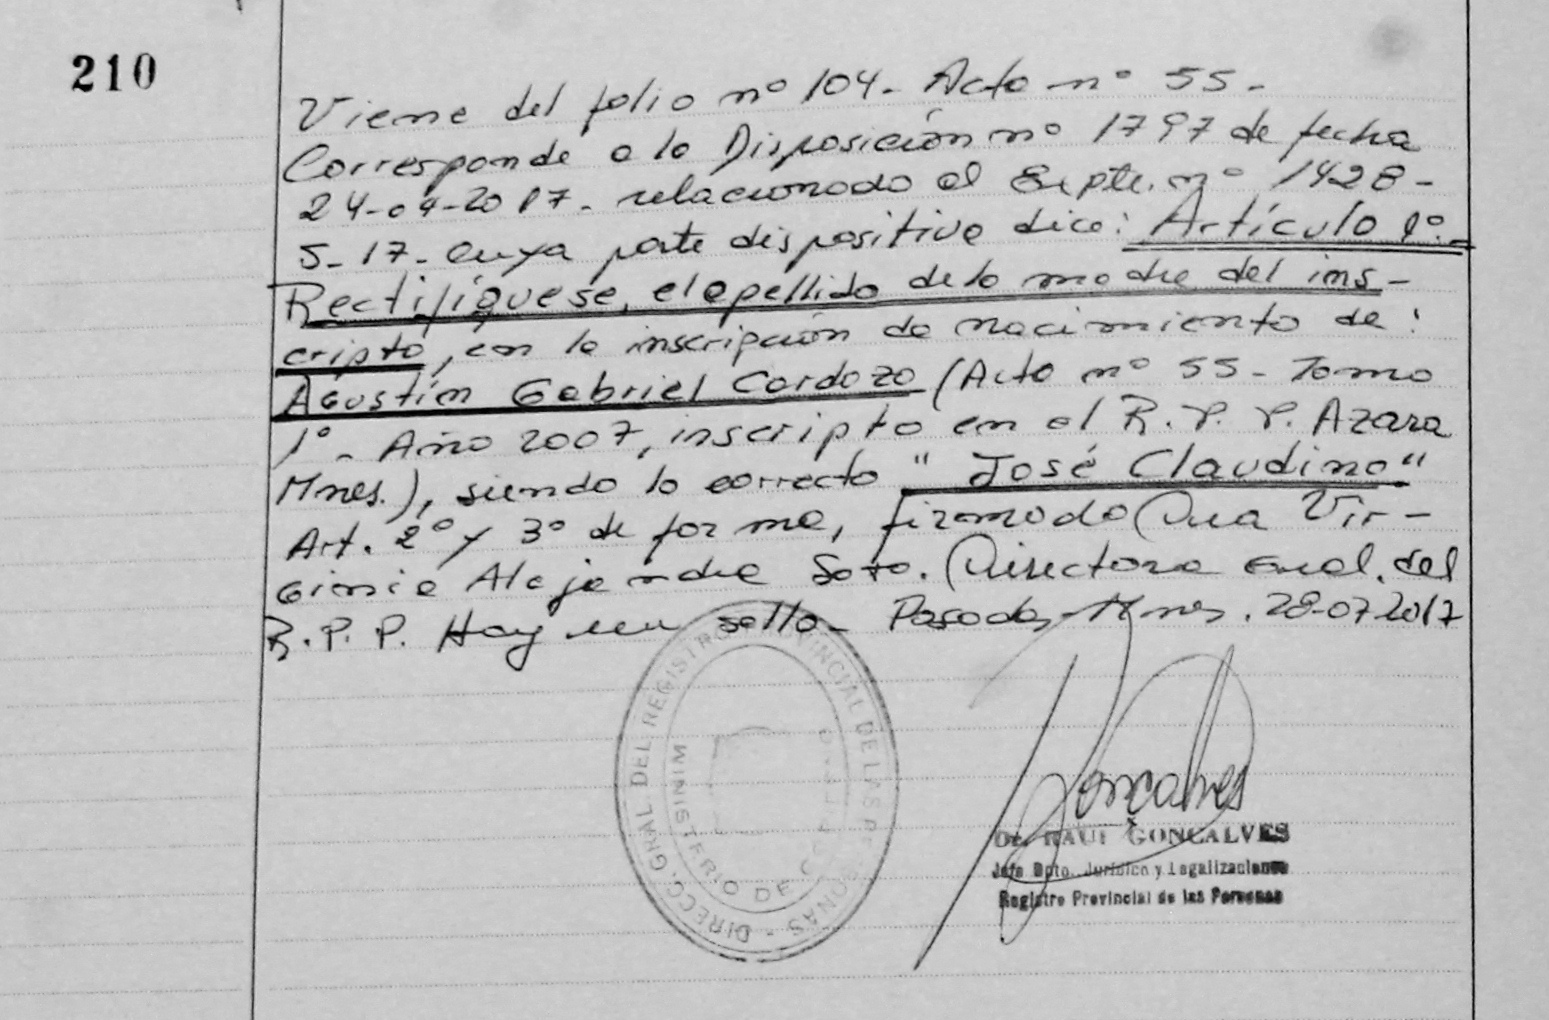 210
Viene del folio nº 104. Acta nº 55.
Corresponde a la Disposición nº 1797 de fecha
24-04-2017. relacionado al Expte. nº 1428-
S-17. cuya parte dispositiva dice: Artículo 1º.
Rectifíquese, el apellido de la madre del ins-
cripto, en la inscripción de nacimiento de:
Agustín Gabriel Cardozo (Acta nº 55 - Tomo
1º - Año 2007, inscripto en el R. P. P. Azara
Mnes.), siendo lo correcto "José Claudino"
Art. 2º y 3º de forma, firmado Dra Vir-
ginia Alejandra Soto. Directora Gral. del
R. P. P. Hay un sello. Posadas, Mnes. 28-07-2017
DIRECC. GRAL. DEL REGISTRO PROVINCIAL DE LAS PERSONAS
MINISTERIO DE GOBIERNO
Goncalves
Dr. RAUL GONCALVES
Jefe Dpto. Jurídico y Legalizaciones
Registro Provincial de las Personas